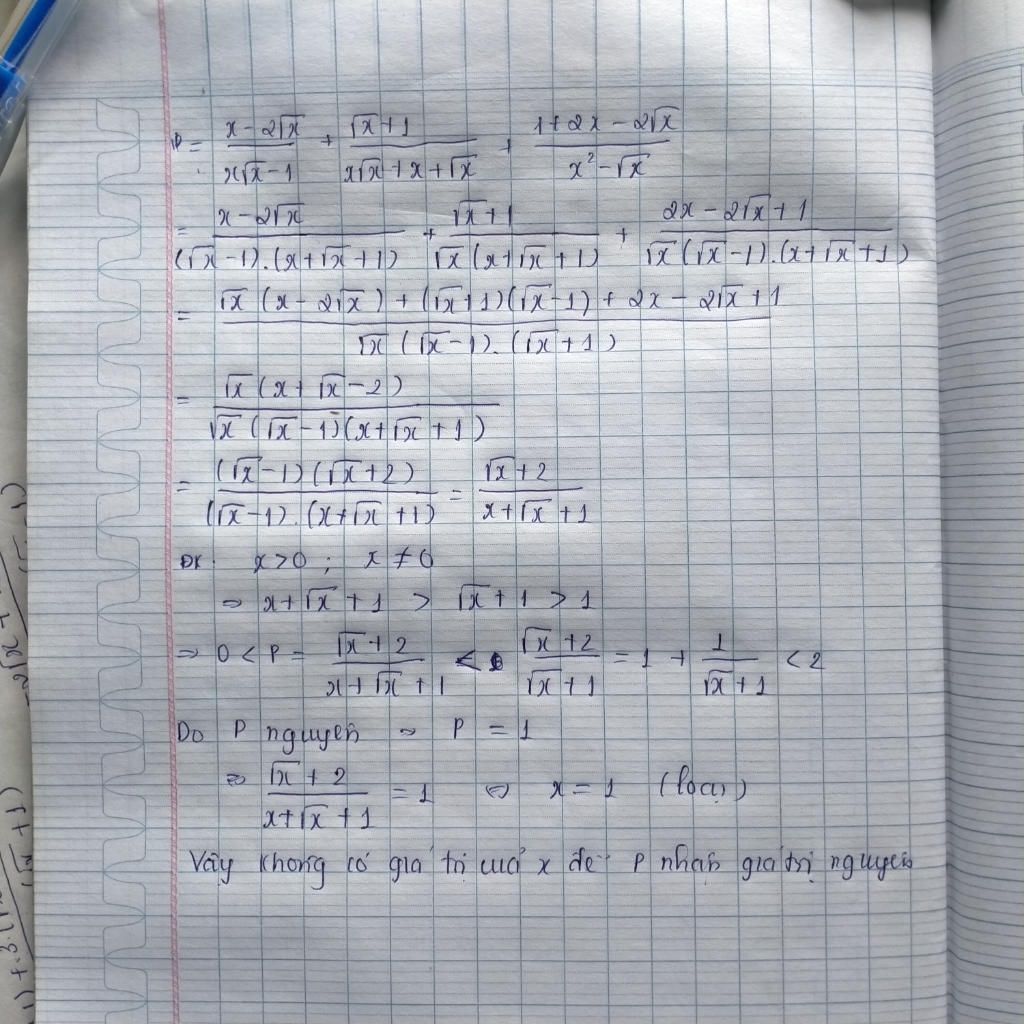 P = (x - 2√x)/(x√x - 1) + (√x + 1)/(x√x + x + √x) + (1 + 2x - 2√x)/(x² - √x)
= (x - 2√x)/((√x - 1).(x + √x + 1)) + (√x + 1)/(√x(x + √x + 1)) + (2x - 2√x + 1)/(√x(√x - 1).(x + √x + 1))
= (√x(x - 2√x) + (√x + 1)(√x - 1) + 2x - 2√x + 1)/(√x(√x - 1).(√x + 1))
= (√x(x + √x - 2))/(√x(√x - 1)(x + √x + 1))
= ((√x - 1)(√x + 2))/((√x - 1).(x + √x + 1)) = (√x + 2)/(x + √x + 1)
ĐK: x > 0 ; x ≠ 0
⇒ x + √x + 1 > √x + 1 > 1
⇒ 0 < P = (√x + 2)/(x + √x + 1) < (√x + 2)/(√x + 1) = 1 + 1/(√x + 1) < 2
Do P nguyên ⇒ P = 1
⇒ (√x + 2)/(x + √x + 1) = 1 ⇔ x = 1 (loại)
Vậy không có giá trị của x để P nhận giá trị nguyên